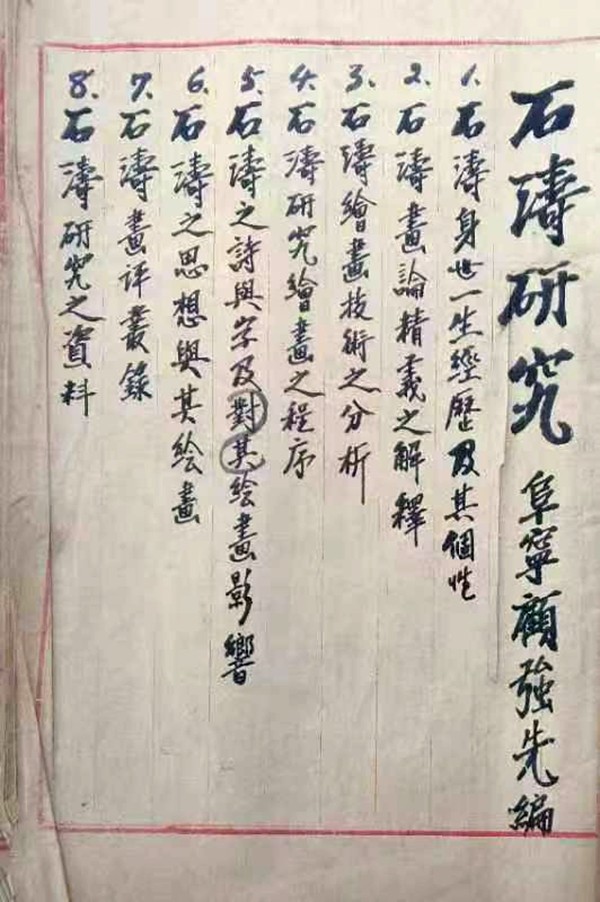 石濤研究 阜寧顧強先編
1、石濤身世一生經歷及其個性
2、石濤畫論精義之解釋
3、石濤繪畫技術之分析
4、石濤研究繪畫之程序
5、石濤之詩與字及對其绘畫影響
6、石濤之思想與其绘畫
7、石濤畫评叢錄
8、石濤研究之資料